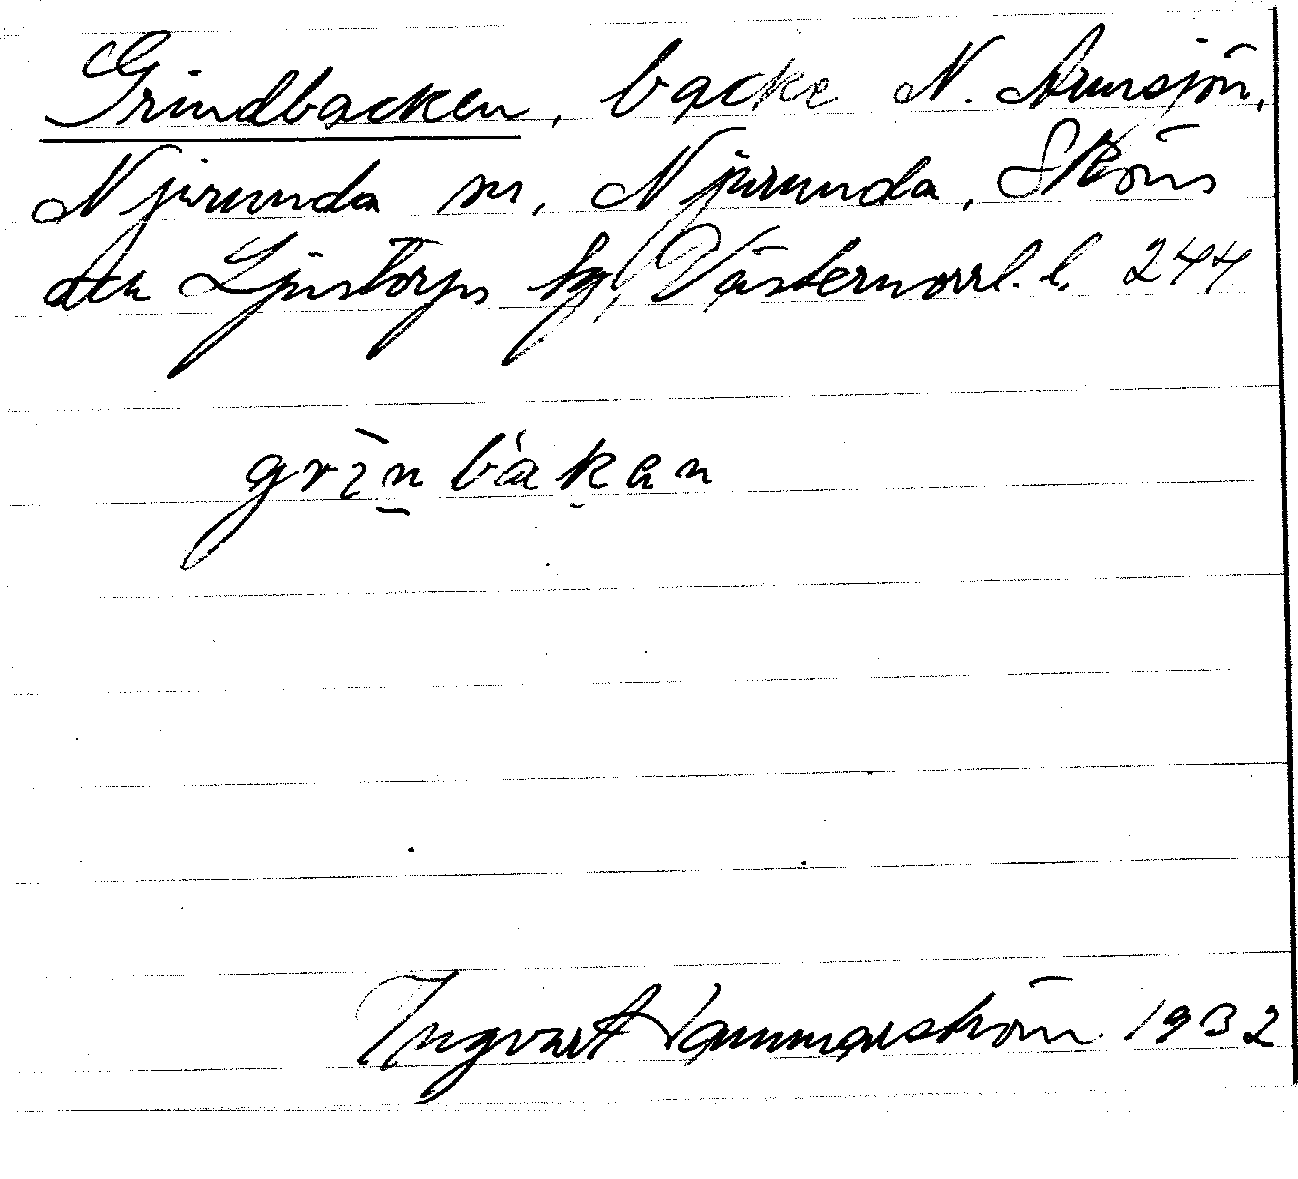 Grindbacken, backe N. Armsjön,
Njurunda sn, Njurunda, Sköns
och Ljustorps tg, Västernorrl. l. 244
grìn bákan
Ingvart Hammarström 1932